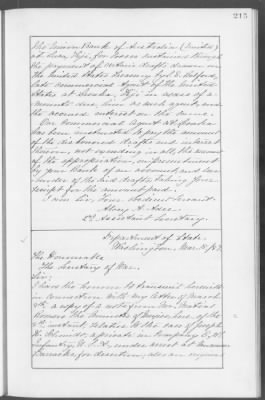 215
The Union Bank of Australia (limited)
at Suva, Fiji, for losses sustained through
the payment of certain drafts drawn on
the United States Treasury by
late commercial Agent of the United
States at Levuka, Fiji in excess of a-
mounts due him as such agent, and
the accrued interest on the same.
Our Commercial Agent at Levuka
has been instructed to pay the amount
of the dishonored drafts and interest
thereon, not exceeding in all, the amount
of the appropriation, on presentment
by your Bank of an account, and sur-
render of the said drafts, taking your
receipt for the amount paid.
I am Sir, Your obedient Servant.
Alvey A. Adee
2d Assistant Secretary.
Department of State
Washington, Mar. 15/87
The Honorable
The Secretary of War.
Sir:
I have the honor to transmit herewith
in connection with my letter of March
9th, a copy of a note from Mr. Matias
Romero The Minister of Mexico here, of the
9th instant, relative to the case of Joseph
H. Schmidt, a private in Company
Infantry, U. S. A., under arrest at
for desertion; also an original